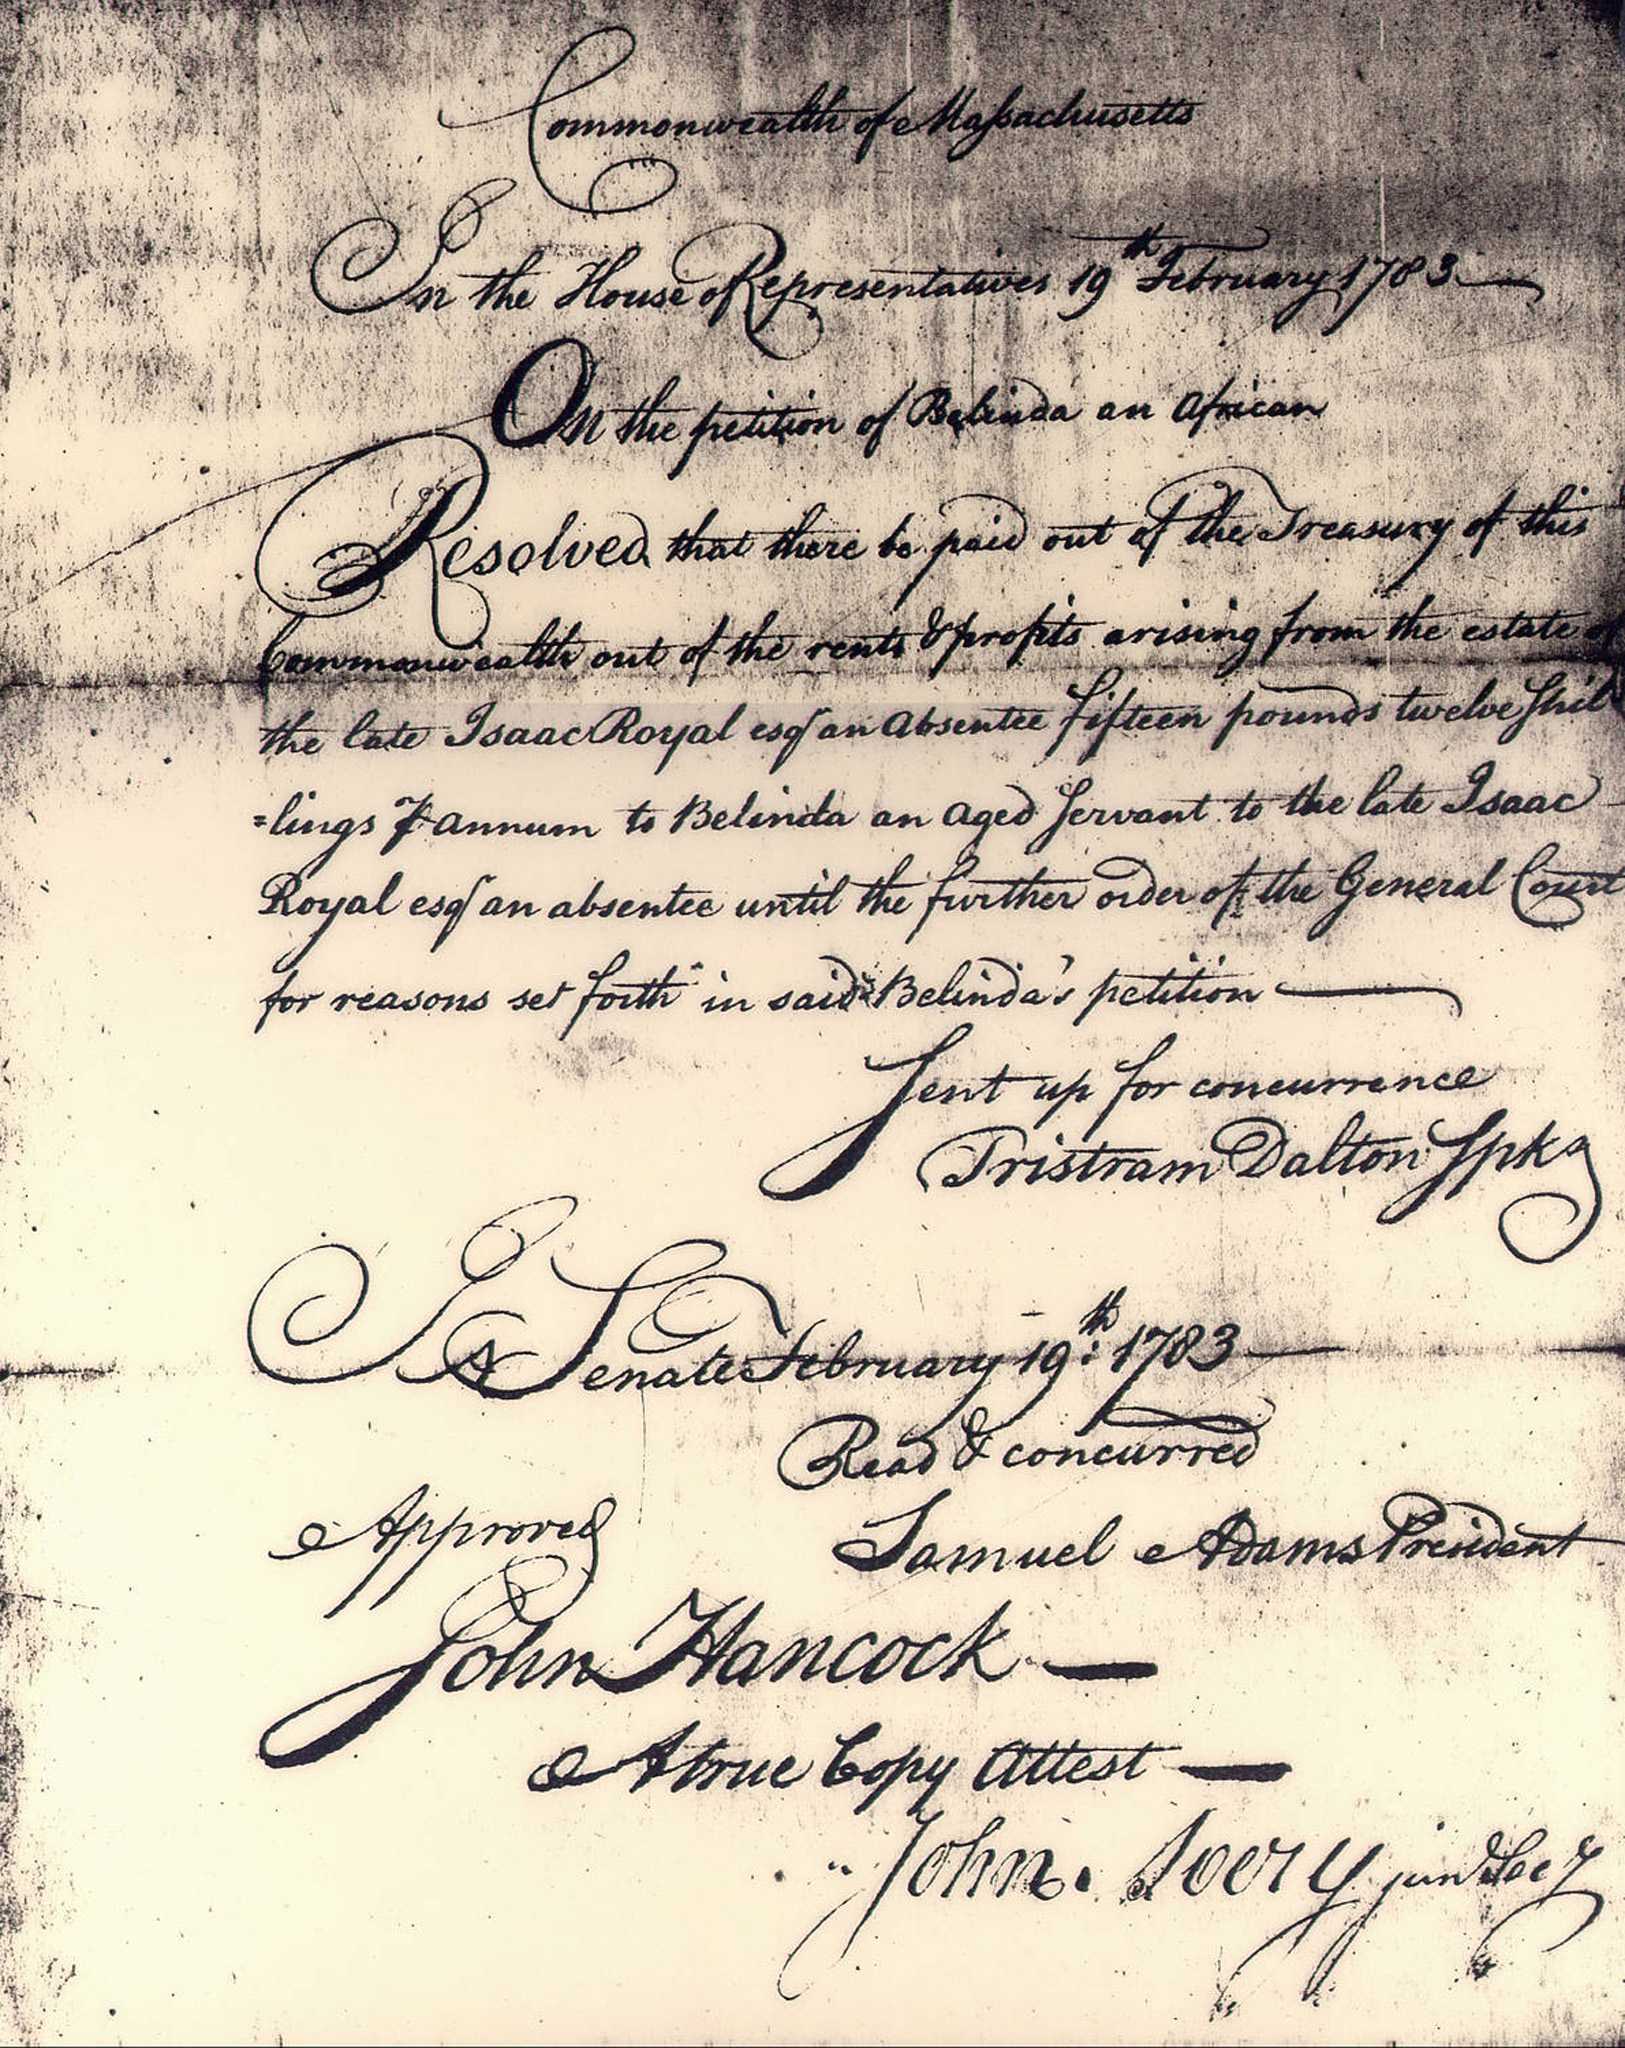 Commonwealth of Massachusetts
In the House of Representatives 19th February 1783
On the petition of Belinda an African
Resolved that there be paid out of the Treasury of this
Commonwealth out of the rents & profits arising from the estate of
the late Isaac Royal esqr an absentee fifteen pounds twelve shil
=lings ⅌ annum to Belinda an aged servant to the late Isaac
Royal esqr an absentee until the further order of the General Court
for reasons set forth in said Belinda's petition
Sent up for concurrence
Tristram Dalton Spkr
In Senate February 19th: 1783
Read & concurred
Approved
Samuel Adams President
John Hancock
A true Copy Attest
John Avery junr Secy